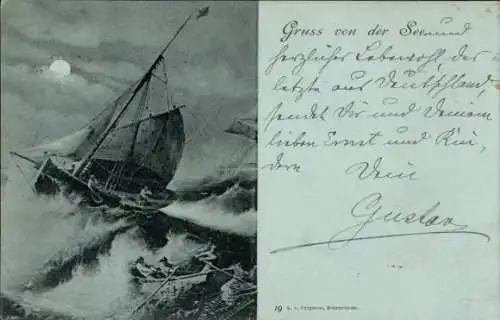 Gruss von der See und
herzliches Lebewohl, der
letzte aus Deutschland,
sendet Dir und Deinem
lieben Ernst und Kin,
dern Dein
Gustav
19